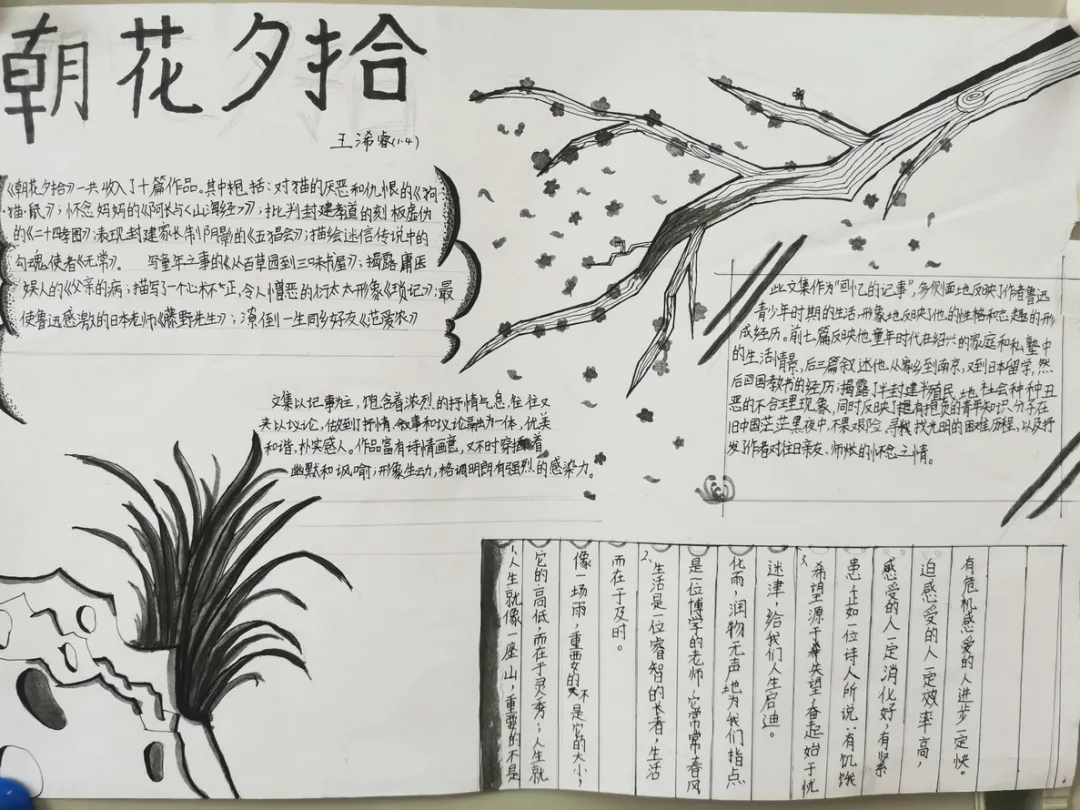 朝花夕拾
王浠睿(1.4)
《朝花夕拾》一共收入了十篇作品。其中包括:对猫的厌恶和仇恨的《狗
·猫·鼠》;怀念妈妈的《阿长与〈山海经〉》;批判封建孝道的刻板虚伪
的《二十四孝图》;表现封建家长制阴影的《五猖会》;描绘迷信传说中的
勾魂使者《无常》。 写童年之事的《从百草园到三味书屋》;揭露庸医
误人的《父亲的病;描写了一个心术不正,令人憎恶的衍太太形象《琐记》;最
使鲁迅感激的日本老师《藤野先生》;潦倒一生同乡好友《范爱农》
文集以记事为主,饱含着浓烈的抒情气息,往往又
夹以议论,做到了抒情、叙事和议论融为一体,优美
和谐,朴实感人。作品富有诗情画意,又不时穿插着
幽默和讽喻;形象生动,格调明朗有强烈的感染力。
此文集作为"回忆的记事",多侧面地反映了作者鲁迅
青少年时期的生活,形象地反映了他的性格和志趣的形
成经历。前七篇反映他童年时代在绍兴的家庭和私塾中
的生活情景,后三篇叙述他从家乡到南京,又到日本留学,然
后回国教书的经历;揭露了半封建半殖民地社会种种丑
恶的不合理现象,同时反映了抱有抱负的青年知识分子在
旧中国茫茫黑夜中,不畏艰险,寻找光明的困难历程,以及抒
发了作者对往日亲友、师长的怀念之情。
1、人生就像一座山,重要的不是
它的高低,而在于灵秀;人生就
像一场雨,重要的不是它的大小,
而在于及时。
2、生活是一位睿智的长者,生活
是一位博学的老师,它常常春风
化雨,润物无声地为我们指点
迷津,给我们人生启迪。
3、希望源于失望,奋起始于忧
患,正如一位诗人所说:有饥饿
感受的人一定消化好,有紧
迫感受的人一定效率高,
有危机感受的人进步一定快。